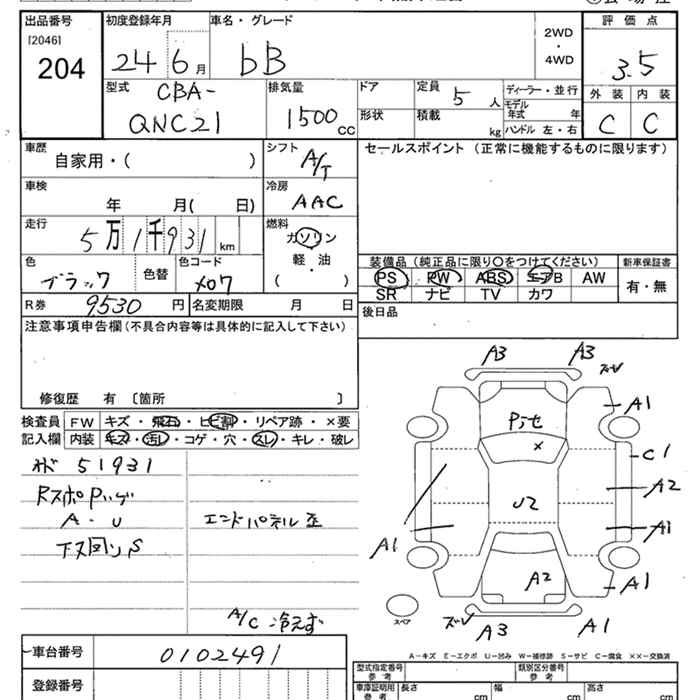 出品番号
[2046]
204
初度登録年月
24 6月
車名・グレード
bB
2WD
・
4WD
評価点
3.5
型式
CBA-
QNC21
排気量
1500 CC
ドア
形状
定員
5 人
積載
kg
ディーラー・並行
モデル年式 年
ハンドル 左・右
外装 内装
C C
車歴
自家用・( )
シフト
A/T
セールスポイント (正常に機能するものに限ります)
車検
年 月( 日)
冷房
AAC
走行
5万1千931 km
燃料
ガソリン
軽・油
・
( )
色
ブラック
色替
色コード
X07
装備品 (純正品に限り〇をつけてください)
新車保証書
PS PW ABS エアB AW
SR ナビ TV カワ
有・無
R券 9,530 円
名変期限 月 日
後日品
注意事項申告欄 (不具合内容等は具体的に記入して下さい)
修復歴 有 〔箇所 〕
検査員
記入欄
FW キズ・飛石・ヒビ割・リペア跡・×要
内装 キズ・汚レ・コゲ・穴・スレ・キレ・破レ
51931
A・U
エンドパネル歪
A/C 冷えず
A3 A3
ズレ
A1
Pite
×
C1
A2
U2
A1
A1
A2
A1
スペア
ズレ
A3
A1
車台番号
0102491
登録番号
A-キズ E-エクボ U-凹み W-補修跡 S-サビ C-腐食 ××-交換済
型式指定番号
参考
類別区分番号
参考
車庫証明用
参考
長さ cm
幅 cm
高さ cm